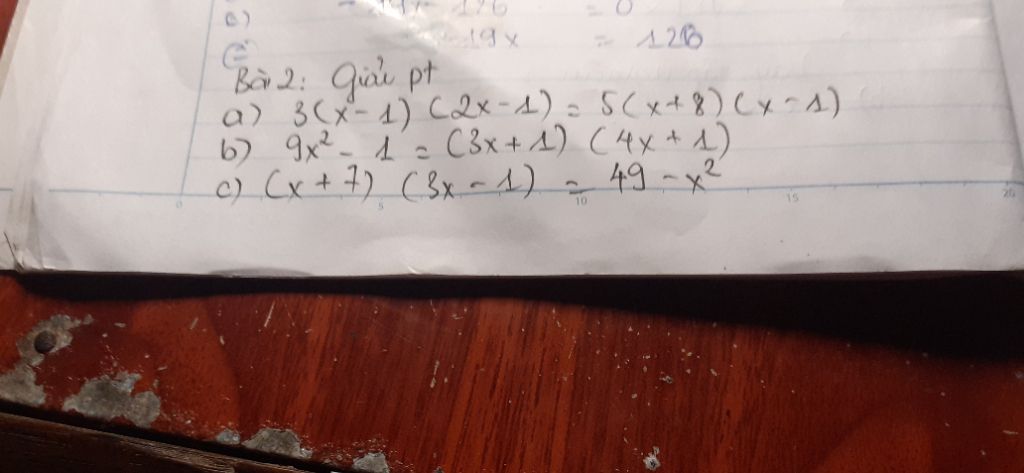 = 0
c)
19x = 126
Bài 2: Giải pt
a) 3(x-1) (2x-1) = 5(x+8) (x-1)
b) 9x² - 1 = (3x+1) (4x+1)
c) (x+7) (3x-1) = 49 - x²
0 5 10 15 20